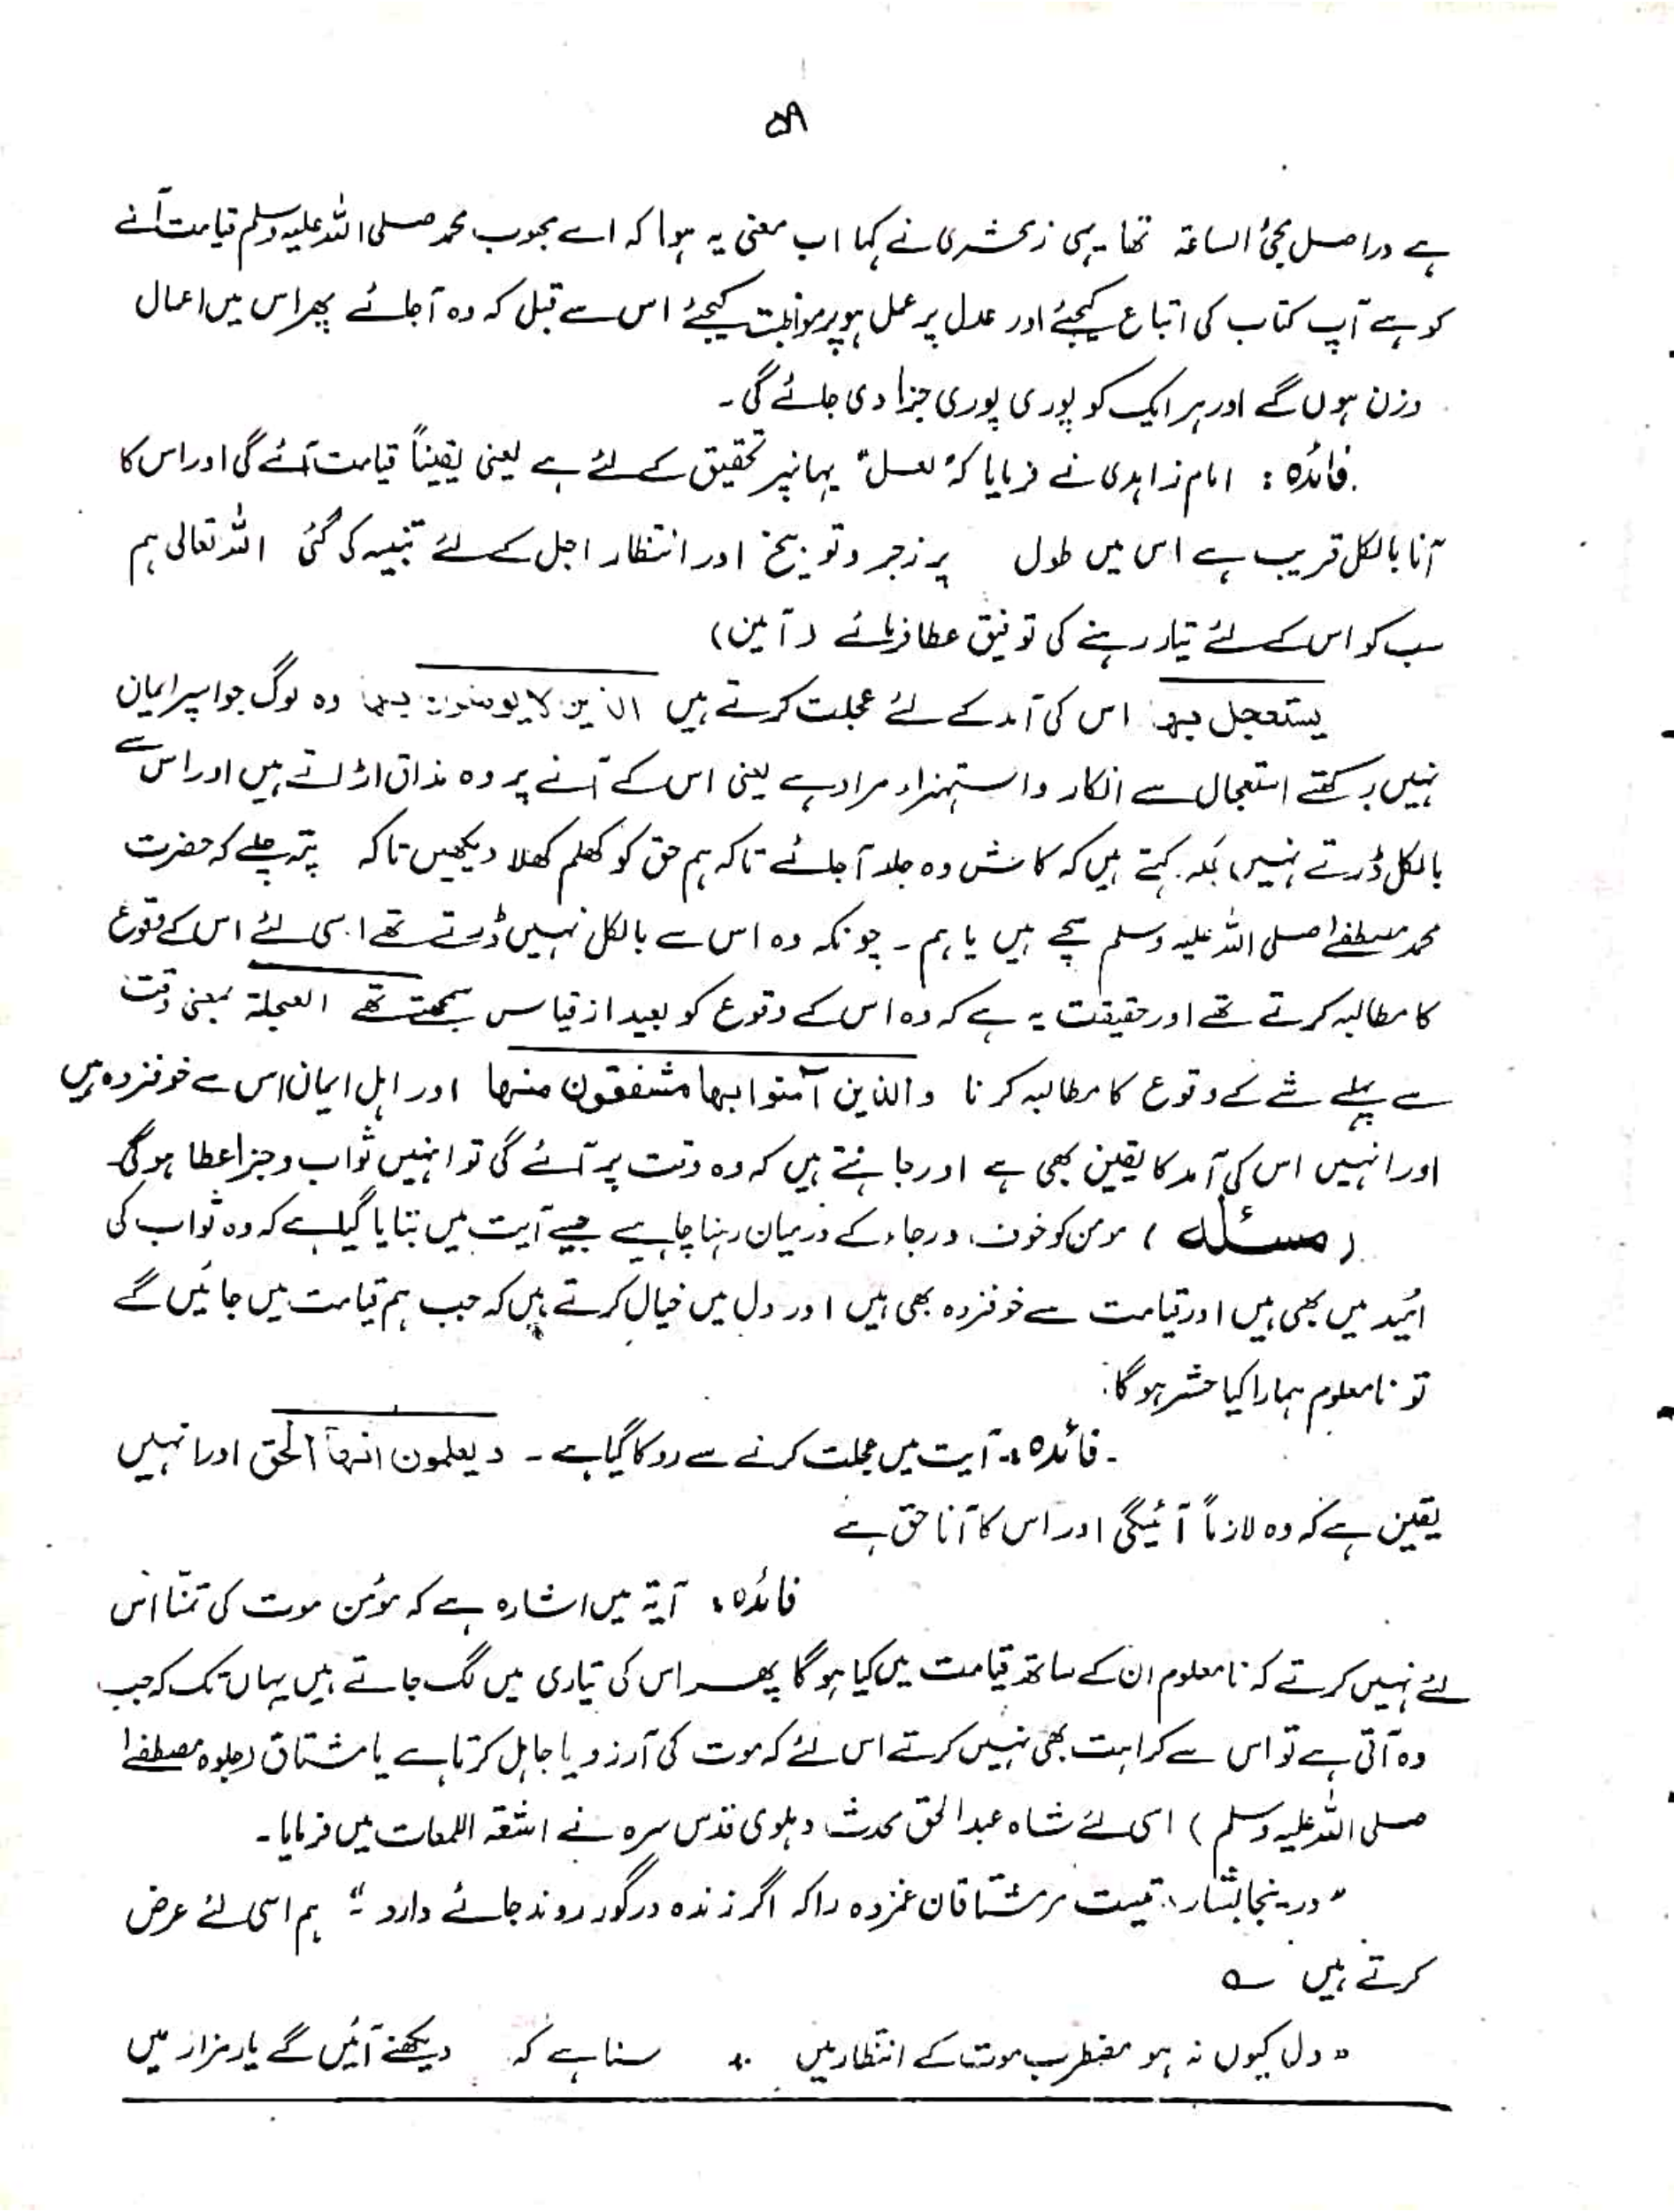 ۵۸
ہے دراصل مجئ الساعۃ تھا یہی زمخشری نے کہا اب معنی یہ ہوا کہ اے محبوب محمد صلی اللہ علیہ وسلم قیامت آنے
کو ہے آپ کتاب کی اتباع کیجئے اور عدل پر عمل ہو پر مواظبت کیجئے اس سے قبل کہ وہ آجائے پھر اس میں اعمال
وزن ہوں گے اور ہر ایک کو پوری پوری جزا دی جائے گی۔
فائدہ : امام زاہدی نے فرمایا کہ "لعل" یہانپر تحقیق کے لئے ہے یعنی یقیناً قیامت آئے گی اور اس کا
آنا بالکل قریب ہے اس میں طول پر زجر و توبیخ اور انتظار اجل کے لئے تنبیہ کی گئی اللہ تعالی ہم
سب کو اس کے لئے تیار رہنے کی توفیق عطا فرمائے (آمین)
یستعجل بہا اس کی آمد کے لئے عجلت کرتے ہیں الذین لا یومنون بہا وہ لوگ جو اسپر ایمان
نہیں رکھتے استعجال سے انکار و استہزاء مراد ہے یعنی اس کے آنے پر وہ مذاق اڑاتے ہیں اور اس سے
بالکل ڈرتے نہیں بلکہ کہتے ہیں کہ کاش وہ جلد آجائے تاکہ ہم حق کو کھلم کھلا دیکھیں تاکہ پتہ چلے کہ حضرت
محمد مصطفےٰ صلی اللہ علیہ وسلم سچے ہیں یا ہم۔ چونکہ وہ اس سے بالکل نہیں ڈرتے تھے اسی لئے اس کے وقوع
کا مطالبہ کرتے تھے اور حقیقت یہ ہے کہ وہ اس کے وقوع کو بعید از قیاس سمجھتے تھے العجلۃ بمعنی وقت
سے پہلے شے کے وقوع کا مطالبہ کرنا والذین آمنوا بہا مشفقون منہا اور اہل ایمان اس سے خوفزدہ ہیں
اور انہیں اس کی آمد کا یقین بھی ہے اور جانتے ہیں کہ وہ وقت پر آئے گی تو انہیں ثواب و جزا عطا ہوگی۔
(مسئلہ) مومن کو خوف ورجاء کے درمیان رہنا چاہیے جیسے آیت میں بتایا گیا ہے کہ وہ ثواب کی
امید میں بھی ہیں اور قیامت سے خوفزدہ بھی ہیں اور دل میں خیال کرتے ہیں کہ جب ہم قیامت میں جائیں گے
تو نامعلوم ہمارا کیا حشر ہوگا۔
فائدہ :۔ آیت میں عجلت کرنے سے روکا گیا ہے۔ ویعلمون انہا الحق اور انہیں
یقین ہے کہ وہ لازماً آئیگی اور اس کا آنا حق ہے
فائدہ : آیۃ میں اشارہ ہے کہ مؤمن موت کی تمنّا اس
لئے نہیں کرتے کہ نامعلوم ان کے ساتھ قیامت میں کیا ہوگا پھر اس کی تیاری میں لگ جاتے ہیں یہاں تک کہ جب
وہ آتی ہے تو اس سے کراہت بھی نہیں کرتے اس لئے کہ موت کی آرزو یا جاہل کرتا ہے یا مشتاق (جلوہ مصطفےٰ
صلی اللہ علیہ وسلم) اسی لئے شاہ عبدالحق محدث دہلوی قدس سرہ نے اشعۃ اللمعات میں فرمایا۔
"درینجا بشارتیست مر مشتاقان غمزدہ را کہ اگر زندہ در گور روند جائے دارد"۔ ہم اسی لئے عرض
کرتے ہیں ؎
دل کیوں نہ ہو مضطرب موت کے انتظار میں ٭ سنا ہے کہ دیکھنے آئیں گے یار مزار میں